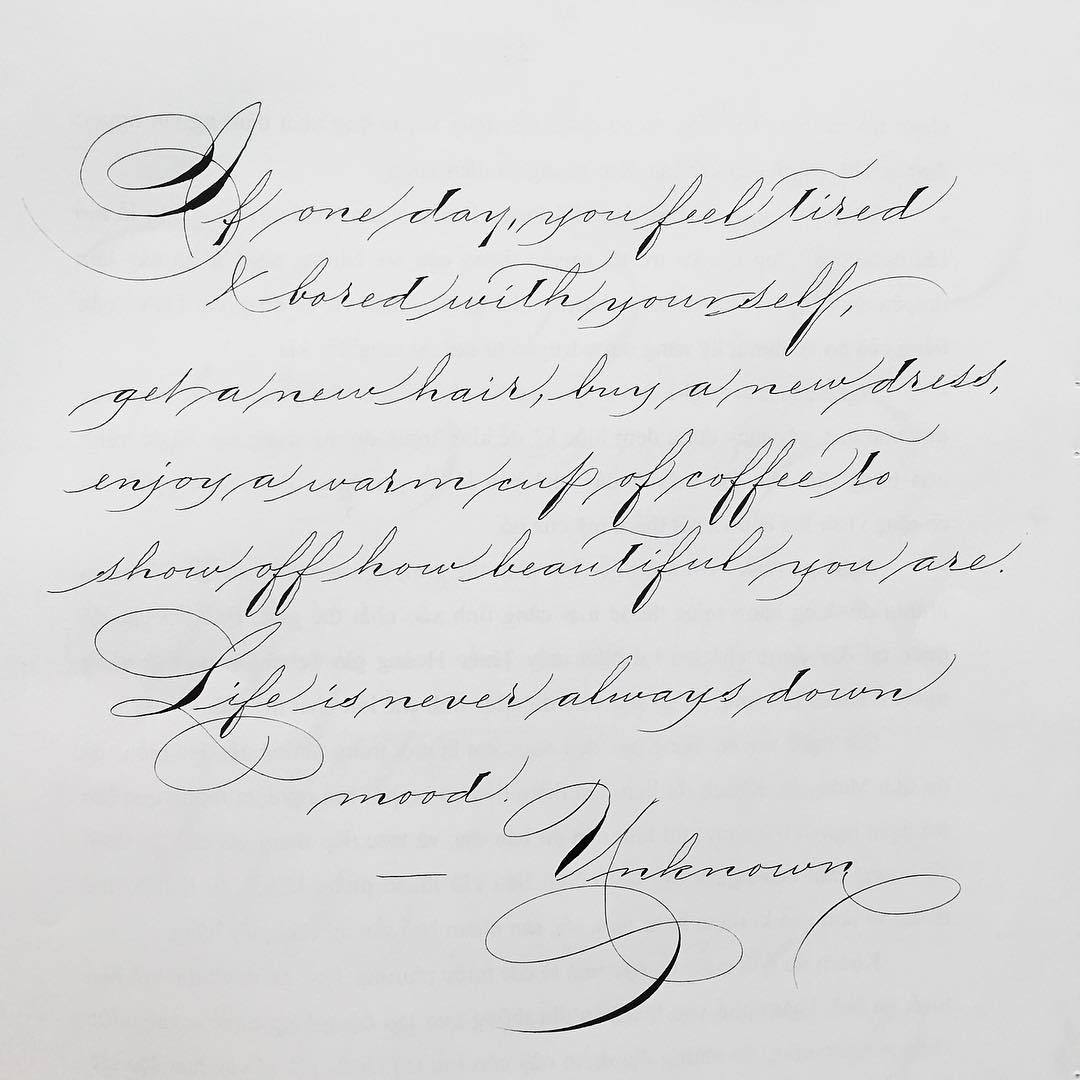 If one day, you feel tired
& bored with yourself,
get a new hair, buy a new dress,
enjoy a warm cup of coffee to
show off how beautiful you are.
Life is never always down
mood.
— Unknown